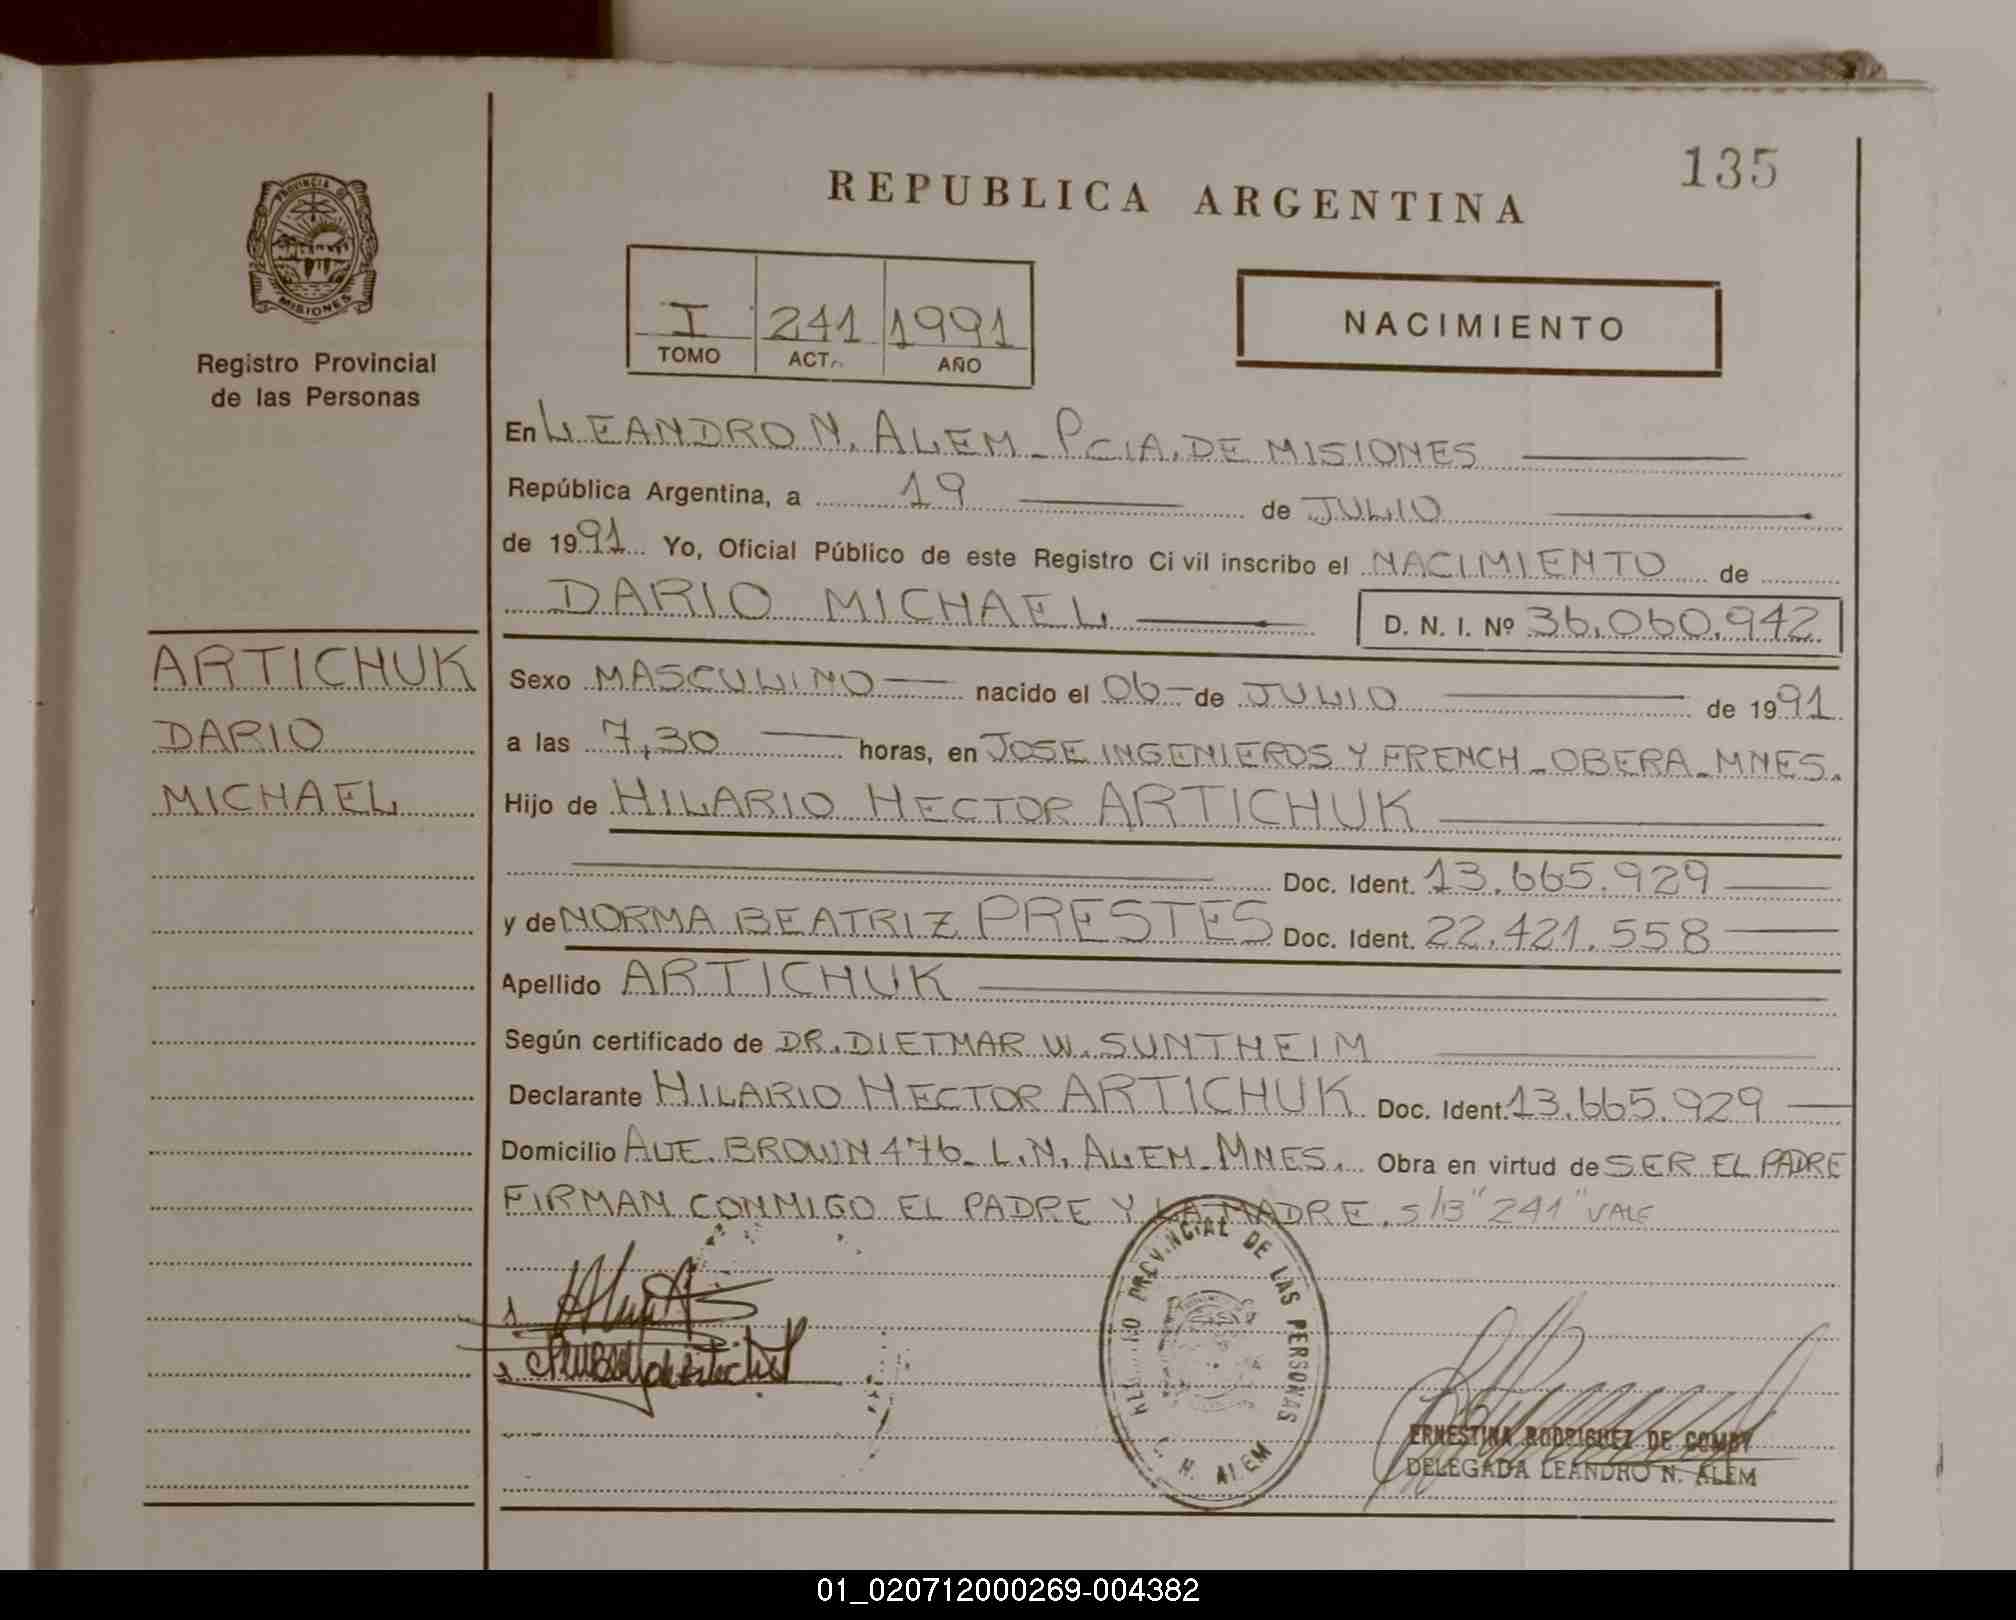 135
REPUBLICA ARGENTINA
PROVINCIA D
MISIONES
Registro Provincial
de las Personas
I 241 1991
TOMO ACTA AÑO
NACIMIENTO
En LEANDRO N. ALEM - PCIA. DE MISIONES
República Argentina, a 19 de JULIO
de 1991 Yo, Oficial Público de este Registro Civil inscribo el NACIMIENTO de
DARIO MICHAEL D. N. I. Nº 36.060.942
ARTICHUK
DARIO
MICHAEL
Sexo MASCULINO nacido el 06 de JULIO de 1991
a las 7,30 horas, en JOSE INGENIEROS Y FRENCH - OBERA - MNES.
Hijo de HILARIO HECTOR ARTICHUK
Doc. Ident. 13.665.929
y de NORMA BEATRIZ PRESTES Doc. Ident. 22.421.558
Apellido ARTICHUK
Según certificado de DR. DIETMAR W. SUNTHEIM
Declarante HILARIO HECTOR ARTICHUK Doc. Ident. 13.665.929
Domicilio AVE. BROWN 476 - L.N. ALEM - MNES. Obra en virtud de SER EL PADRE
FIRMAN CONMIGO EL PADRE Y LA MADRE. s/B "241" VALE
PROVINCIAL DE LAS PERSONAS
L. N. ALEM
ERNESTINA RODRIGUEZ DE GOMBY
DELEGADA LEANDRO N. ALEM
01_020712000269-004382